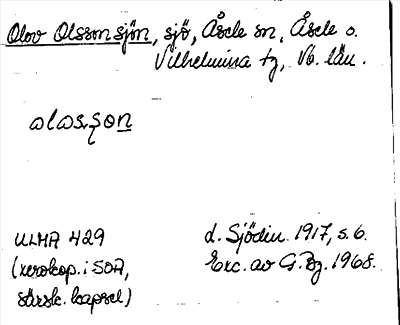 Olov Olssonsjön, sjö, Åsele sn, Åsele o.
Vilhelmina tg, Vb. län.
olasson
ULMA 429
d. Sjödin 1917, s. 6.
(xerokop. i SOA,
Exc. av G. Bg. 1968.
särsk. kapsel)